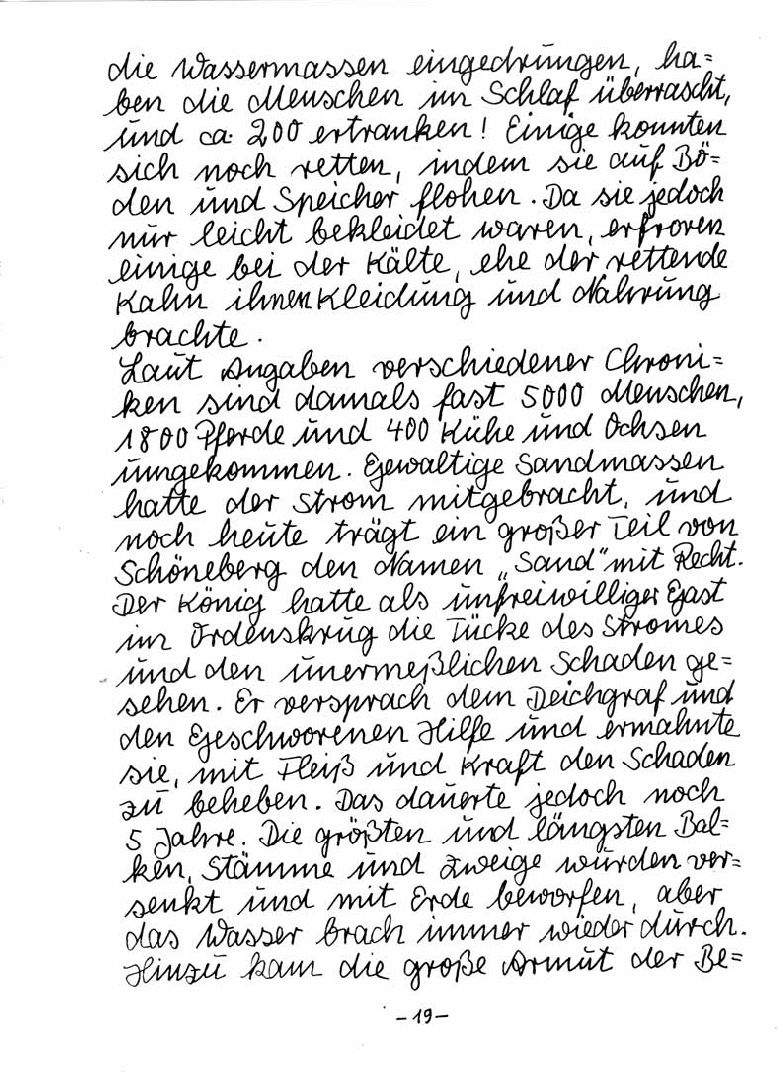 die Wassermassen eingedrungen, ha=
ben die Menschen im Schlaf überrascht,
und ca. 200 ertranken! Einige konnten
sich noch retten, indem sie auf Bö=
den und Speicher flohen. Da sie jedoch
nur leicht bekleidet waren, erfroren
einige bei der Kälte, ehe der rettende
Kahn ihnen Kleidung und Nahrung
brachte.
Laut Angaben verschiedener Chroni=
ken sind damals fast 5000 Menschen,
1800 Pferde und 400 Kühe und Ochsen
umgekommen. Gewaltige Sandmassen
hatte der Strom mitgebracht, und
noch heute trägt ein großer Teil von
Schöneberg den Namen „Sand" mit Recht.
Der König hatte als unfreiwilliger Gast
im Ordenskrug die Tücke des Stromes
und den unermeßlichen Schaden ge=
sehen. Er versprach dem Deichgraf und
den Geschworenen Hilfe und ermahnte
sie, mit Fleiß und Kraft den Schaden
zu beheben. Das dauerte jedoch noch
5 Jahre. Die größten und längsten Bal=
ken, Stämme und Zweige wurden ver=
senkt und mit Erde beworfen, aber
das Wasser brach immer wieder durch.
Hinzu kam die große Armut der Be=
-19-